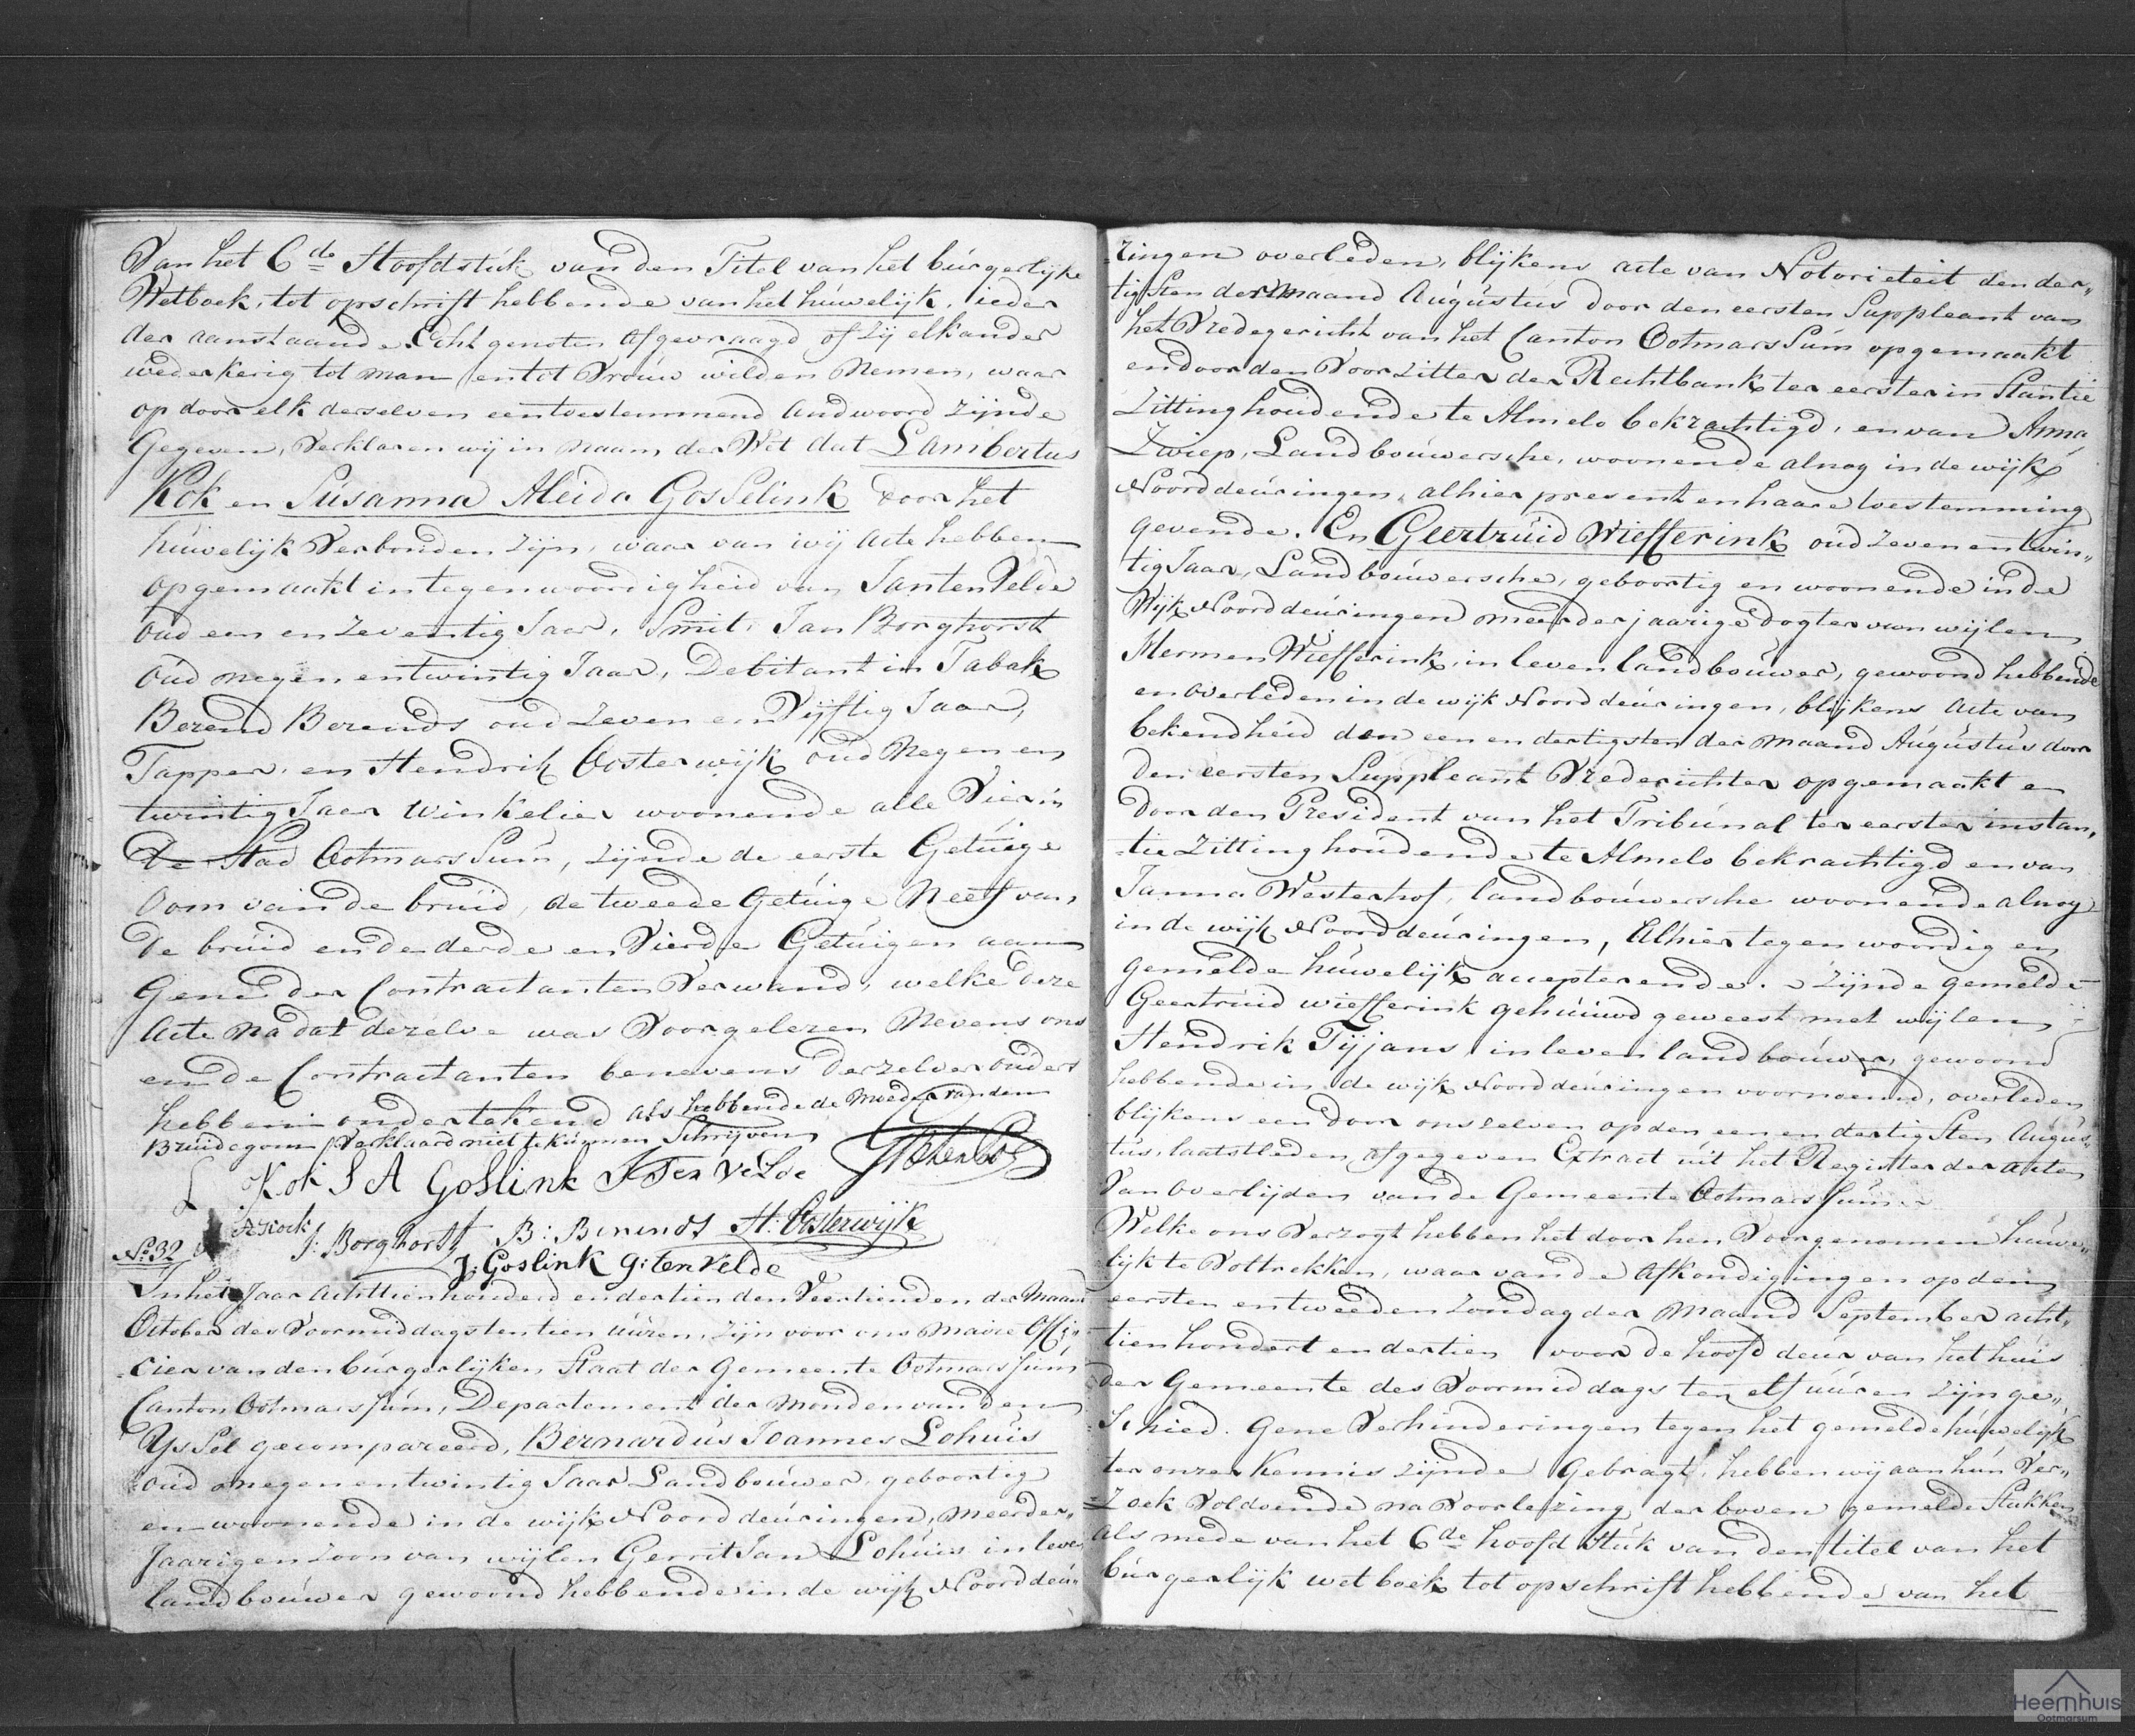 Van het 6de Hoofdstuk van den Titel van het burgerlijke
Wetboek, tot opschrift hebbende van het huwelijk, ieder
der aanstaande Echtgenoten afgevraagd of zij elkander
wederkerig tot man en tot Vrouw wilden Nemen, waar
op door elk derselven een toestemmend andwoord zijnde
Gegeven, Verklaren wij in naam der Wet dat Lambertus
Kok en Susanna Aleida Gosselink door het
huwelijk Verbonden zijn, waar van wij acte hebben
opgemaakt in tegenwoordigheid van Jan ten Velde
oud een en zeventig Jaar, Smit, Jan Borghorst
oud negen entwintig Jaar, Debitant in Tabak
Berend Berends oud zeven en Vijftig Jaar,
Tapper, en Hendrik Oosterwijk oud Negen en
twintig Jaar Winkelier woonende alle Vier in
De Stad Ootmarssum, zijnde de eerste Getuige
Oom van de bruid, de tweede Getuige Neef van
de bruid en de derde en Vierde Getuigen aan
Gene der Contractanten Verwand, welke deze
Acte Na dat dezelve was Voorgelezen Nevens ons
en de Contractanten benevens derzelver ouders
hebben ondertekend als hebbende de Moeder van den
Bruidegom Verklaard niet te kunnen Schrijven
L Kok S A Goslink J Ten Velde
A Kock J: Borghorst B: Berends H: Oosterwijk
J: Goslink G: ten Velde
No. 32
In het Jaar Achttienhonderd en dertien den Veertienden der Maand
October des Voormiddags ten tien uuren, zijn voor ons Maire Offi„
cier van den burgerlijken Staat der Gemeente Ootmarssum
Canton Ootmarssum, Departement der Monden van den
Yssel gecompareerd, Bernardus Joannes Lohuis
oud negen entwintig Jaar Landbouwer, geboortig
en woonende in de wijk Noorddeuringen, Meerder„
Jaarigen zoon van wijlen Gerrit Jan Lohuis in leven
landbouwer gewoond hebbende in de wijk Noorddeu„
ringen overleden, blijkens acte van Notorieteit den der„
tigsten der Maand Augustus door den eersten Suppleant van
het Vredegericht van het Canton Ootmarssum opgemaakt
en door den Voorzitter der Rechtbank ter eerster in Stantie
Zitting houdende te Almelo bekrachtigd, en van Anna
Zwiep, Landbouwersche, woonende alnog in de wijk
Noorddeuringen, alhier present en haare toestemming
gevende. En Geertruid Wiefferink oud zeven en twin„
tig Jaar, Landbouwersche, geboortig en woonende in de
Wijk Noorddeuringen meerderjaarige dogter van wijlen
Hermen Wiefferink, in leven landbouwer, gewoond hebbende
en overleden in de wijk Noorddeuringen, blijkens Acte van
bekendheid den een en dertigsten der maand Augustus door
den eersten Suppleant Vrederichter opgemaakt en
Door den President van het Tribunal ter eerster instan„
tie Zitting houdende te Almelo bekrachtigd en van
Janna Westerhof, landbouwersche woonende alnog
in de wijk Noorddeuringen, Alhier tegenwoordig en
gemelde huwelijk accepterende. zijnde gemelde
Geertruid Wiefferink gehuuwd geweest met wijlen
Hendrik Tijjans, in leven landbouwer, gewoond
hebbende in de wijk Noorddeuringen voornoemd, overleden
blijkens een door ons zelven op den een en dertigsten Augus„
tus, laatstleden afgegeven Extract uit het Register der acten
Van Overlijden van de Gemeente Ootmarssum
Welke ons Verzogt hebben het door hen Voorgenomen huwe„
lijk te Voltrekken, waar van de Afkondigingen op den
eersten en tweeden zondag der Maand September acht„
tienhondert en dertien voor de hoofd deur van het huis
der Gemeente des Voormiddags ten elf uuren zijn ge„
Schied. Gene Verhinderingen tegen het gemelde huwelijk
ter onzer Kennis zijnde Gebragt, hebben wij aan hun Ver„
Zoek Voldoende na Voorlezing der boven gemelde Stukken
als mede van het 6de hoofdstuk van den titel van het
burgerlijk wetboek tot opschrift hebbende van het
Heemhuis
Ootmarsum